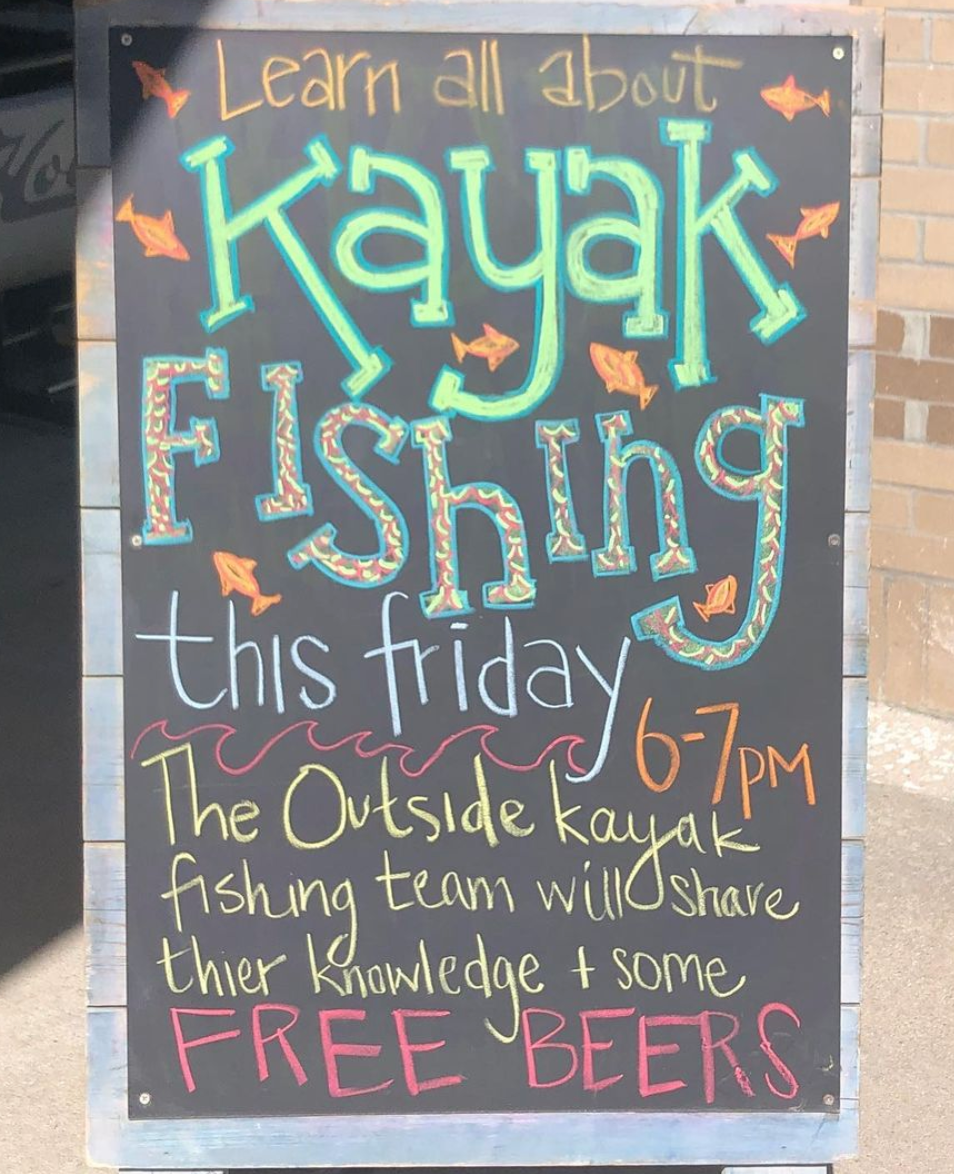 Learn all about
Kayak
FIshIng
this friday
6-7pm
The Outside kayak
fishing team will share
thier knowledge + some
FREE BEERS